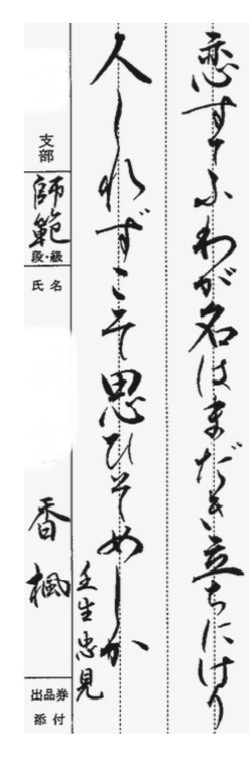 恋すてふわが名はまだき立ちにけり
人しれずこそ思ひそめしか
壬生忠見
支部
師範
段・級
氏名
香楓
出品券
添付